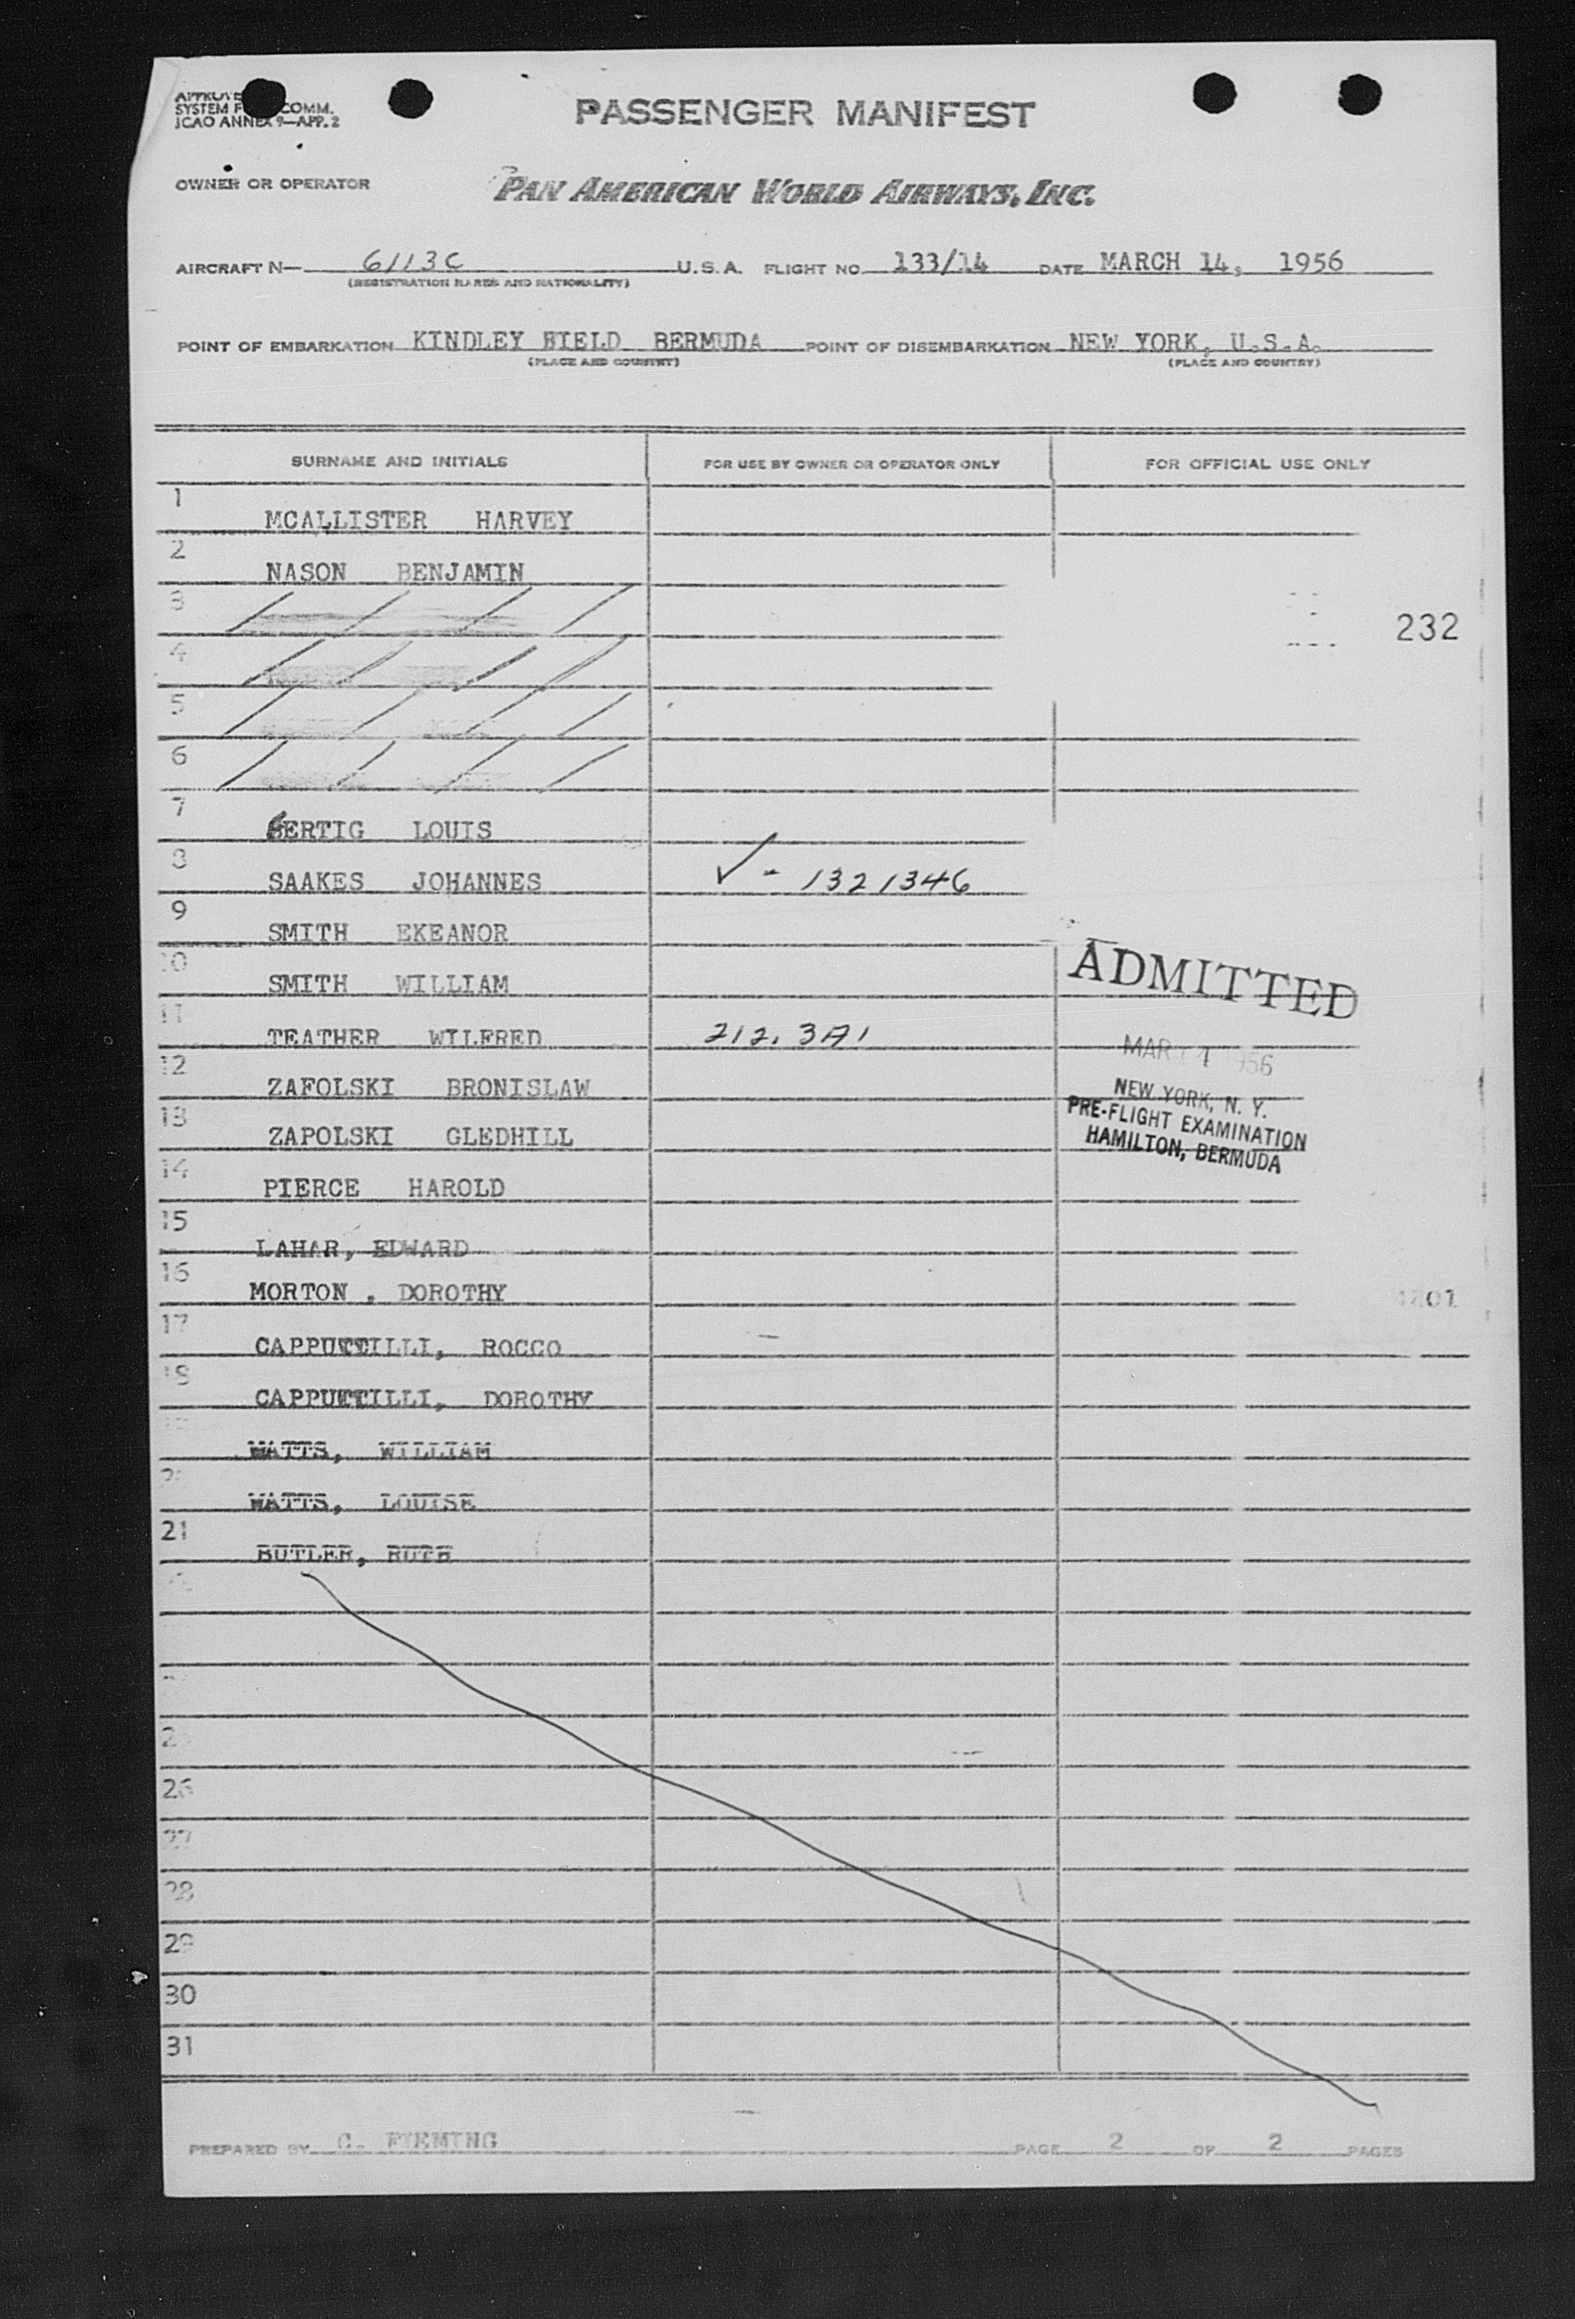 SYSTEM F COMM.
ICAO ANNEX 9—APP. 2
PASSENGER MANIFEST
OWNER OR OPERATOR
PAN AMERICAN WORLD AIRWAYS, INC.
AIRCRAFT N— 6113C U.S.A. FLIGHT NO. 133/14 DATE MARCH 14, 1956
(REGISTRATION MARKS AND NATIONALITY)
POINT OF EMBARKATION KINDLEY BIELD BERMUDA POINT OF DISEMBARKATION NEW YORK, U.S.A.
(PLACE AND COUNTRY) (PLACE AND COUNTRY)
SURNAME AND INITIALS FOR USE BY OWNER OR OPERATOR ONLY FOR OFFICIAL USE ONLY
1 MCALLISTER HARVEY
2 NASON BENJAMIN
3
232
4
5
6
7 GERTIG LOUIS
8 SAAKES JOHANNES ✓ - 1321346
9 SMITH EKEANOR
10 SMITH WILLIAM
ADMITTED
11 TEATHER WILFRED 212.3A1
MAR 14 1956
12 ZAFOLSKI BRONISLAW
NEW YORK, N. Y.
PRE-FLIGHT EXAMINATION
HAMILTON, BERMUDA
13 ZAPOLSKI GLEDHILL
14 PIERCE HAROLD
15 LAHAR, EDWARD
16 MORTON , DOROTHY
17 CAPPUTTILLI, ROCCO
18 CAPPUTTILLI, DOROTHY
WATTS, WILLIAM
WATTS, LOUISE
21 BUTLER, RUTH
26
27
28
29
30
31
PREPARED BY C. FIEMING PAGE 2 OF 2 PAGES